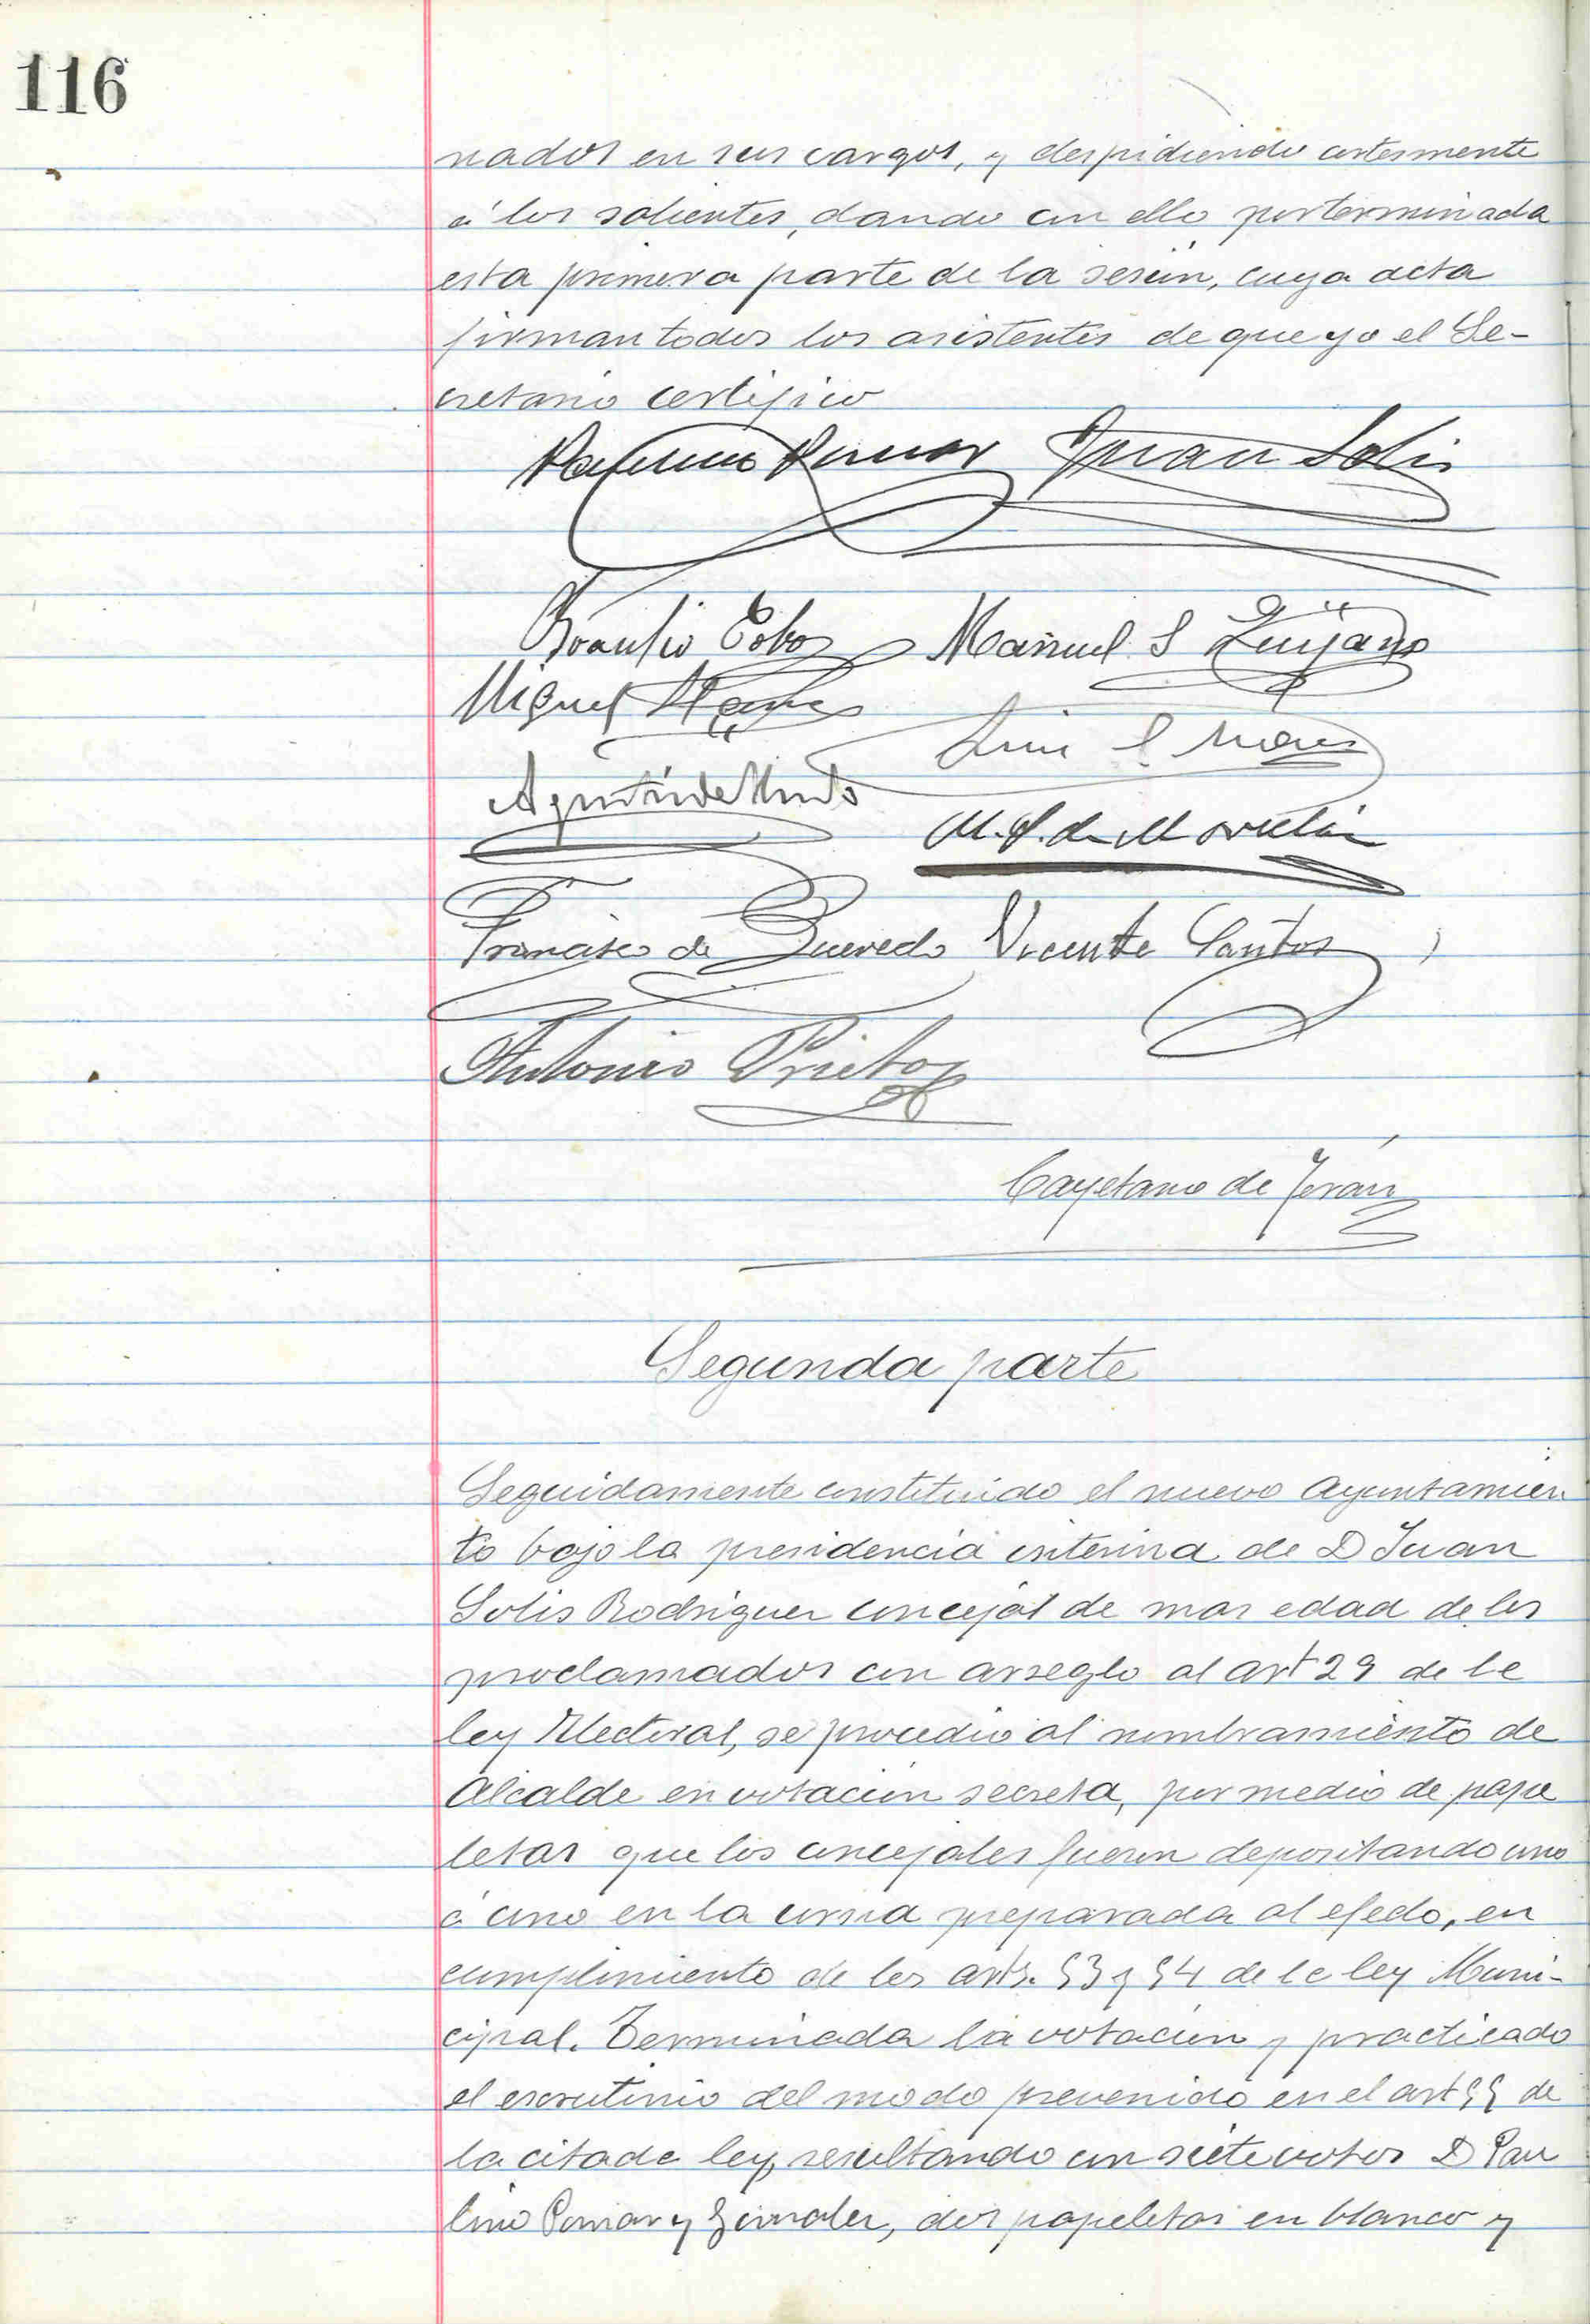 116
nados en sus cargos, y despidiendo cortesmente
á los salientes, dando con ello por terminada
esta primera parte de la sesión, cuya acta
firman todos los asistentes de que yo el Se-
cretario certifico
Juan Solis
Braulio Cobo Manuel S Quijano
Miguel
Luis
Agustín de
M. S. de Movellán
Francisco de Quevedo Vicente Santos
Antonio Prieto
Cayetano de Terán
Segunda parte
Seguidamente constituido el nuevo Ayuntamien
to bajo la presidencia interina de D Juan
Solis Rodriguez concejal de mas edad de los
proclamados con arreglo al art 29 de la
ley Electoral, se procedio al nombramiento de
Alcalde en votación secreta, por medio de pape
letas que los concejales fueron depositando uno
á uno en la urna preparada al efecto, en
cumplimiento de los arts. 53 y 54 de la ley Muni-
cipal. Terminada la votación y practicado
el escrutinio del modo prevenido en el art 55 de
la citada ley, resultando con siete votos D Pau
lino Pomar y, dos papeletas en blanco y